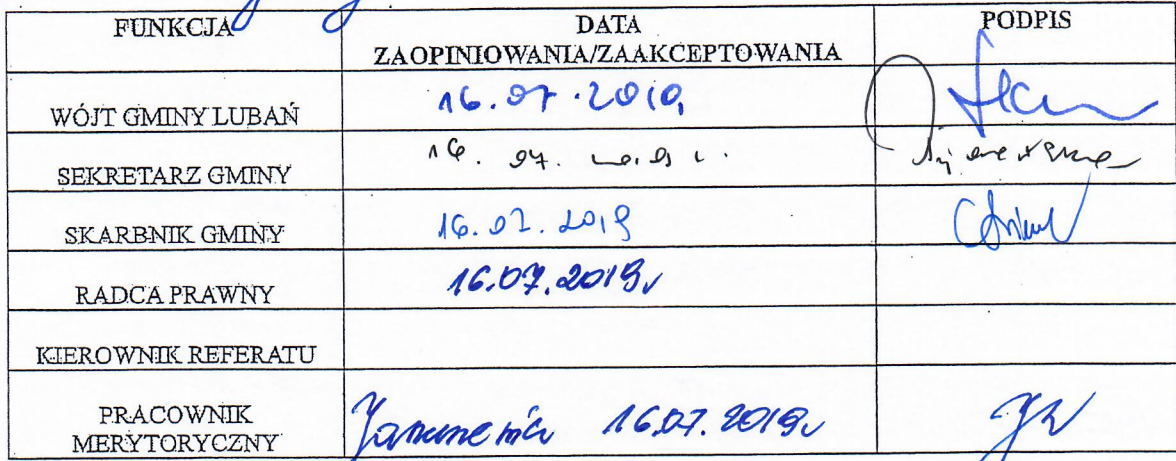 FUNKCJA
DATA
ZAOPINIOWANIA/ZAAKCEPTOWANIA
PODPIS
WÓJT GMINY LUBAŃ 16.07.2019
SEKRETARZ GMINY 16. 07.
SKARBNIK GMINY 16.07.2019
RADCA PRAWNY 16.07.2019r
KIEROWNIK REFERATU
PRACOWNIK
MERYTORYCZNY 16.07.2019r